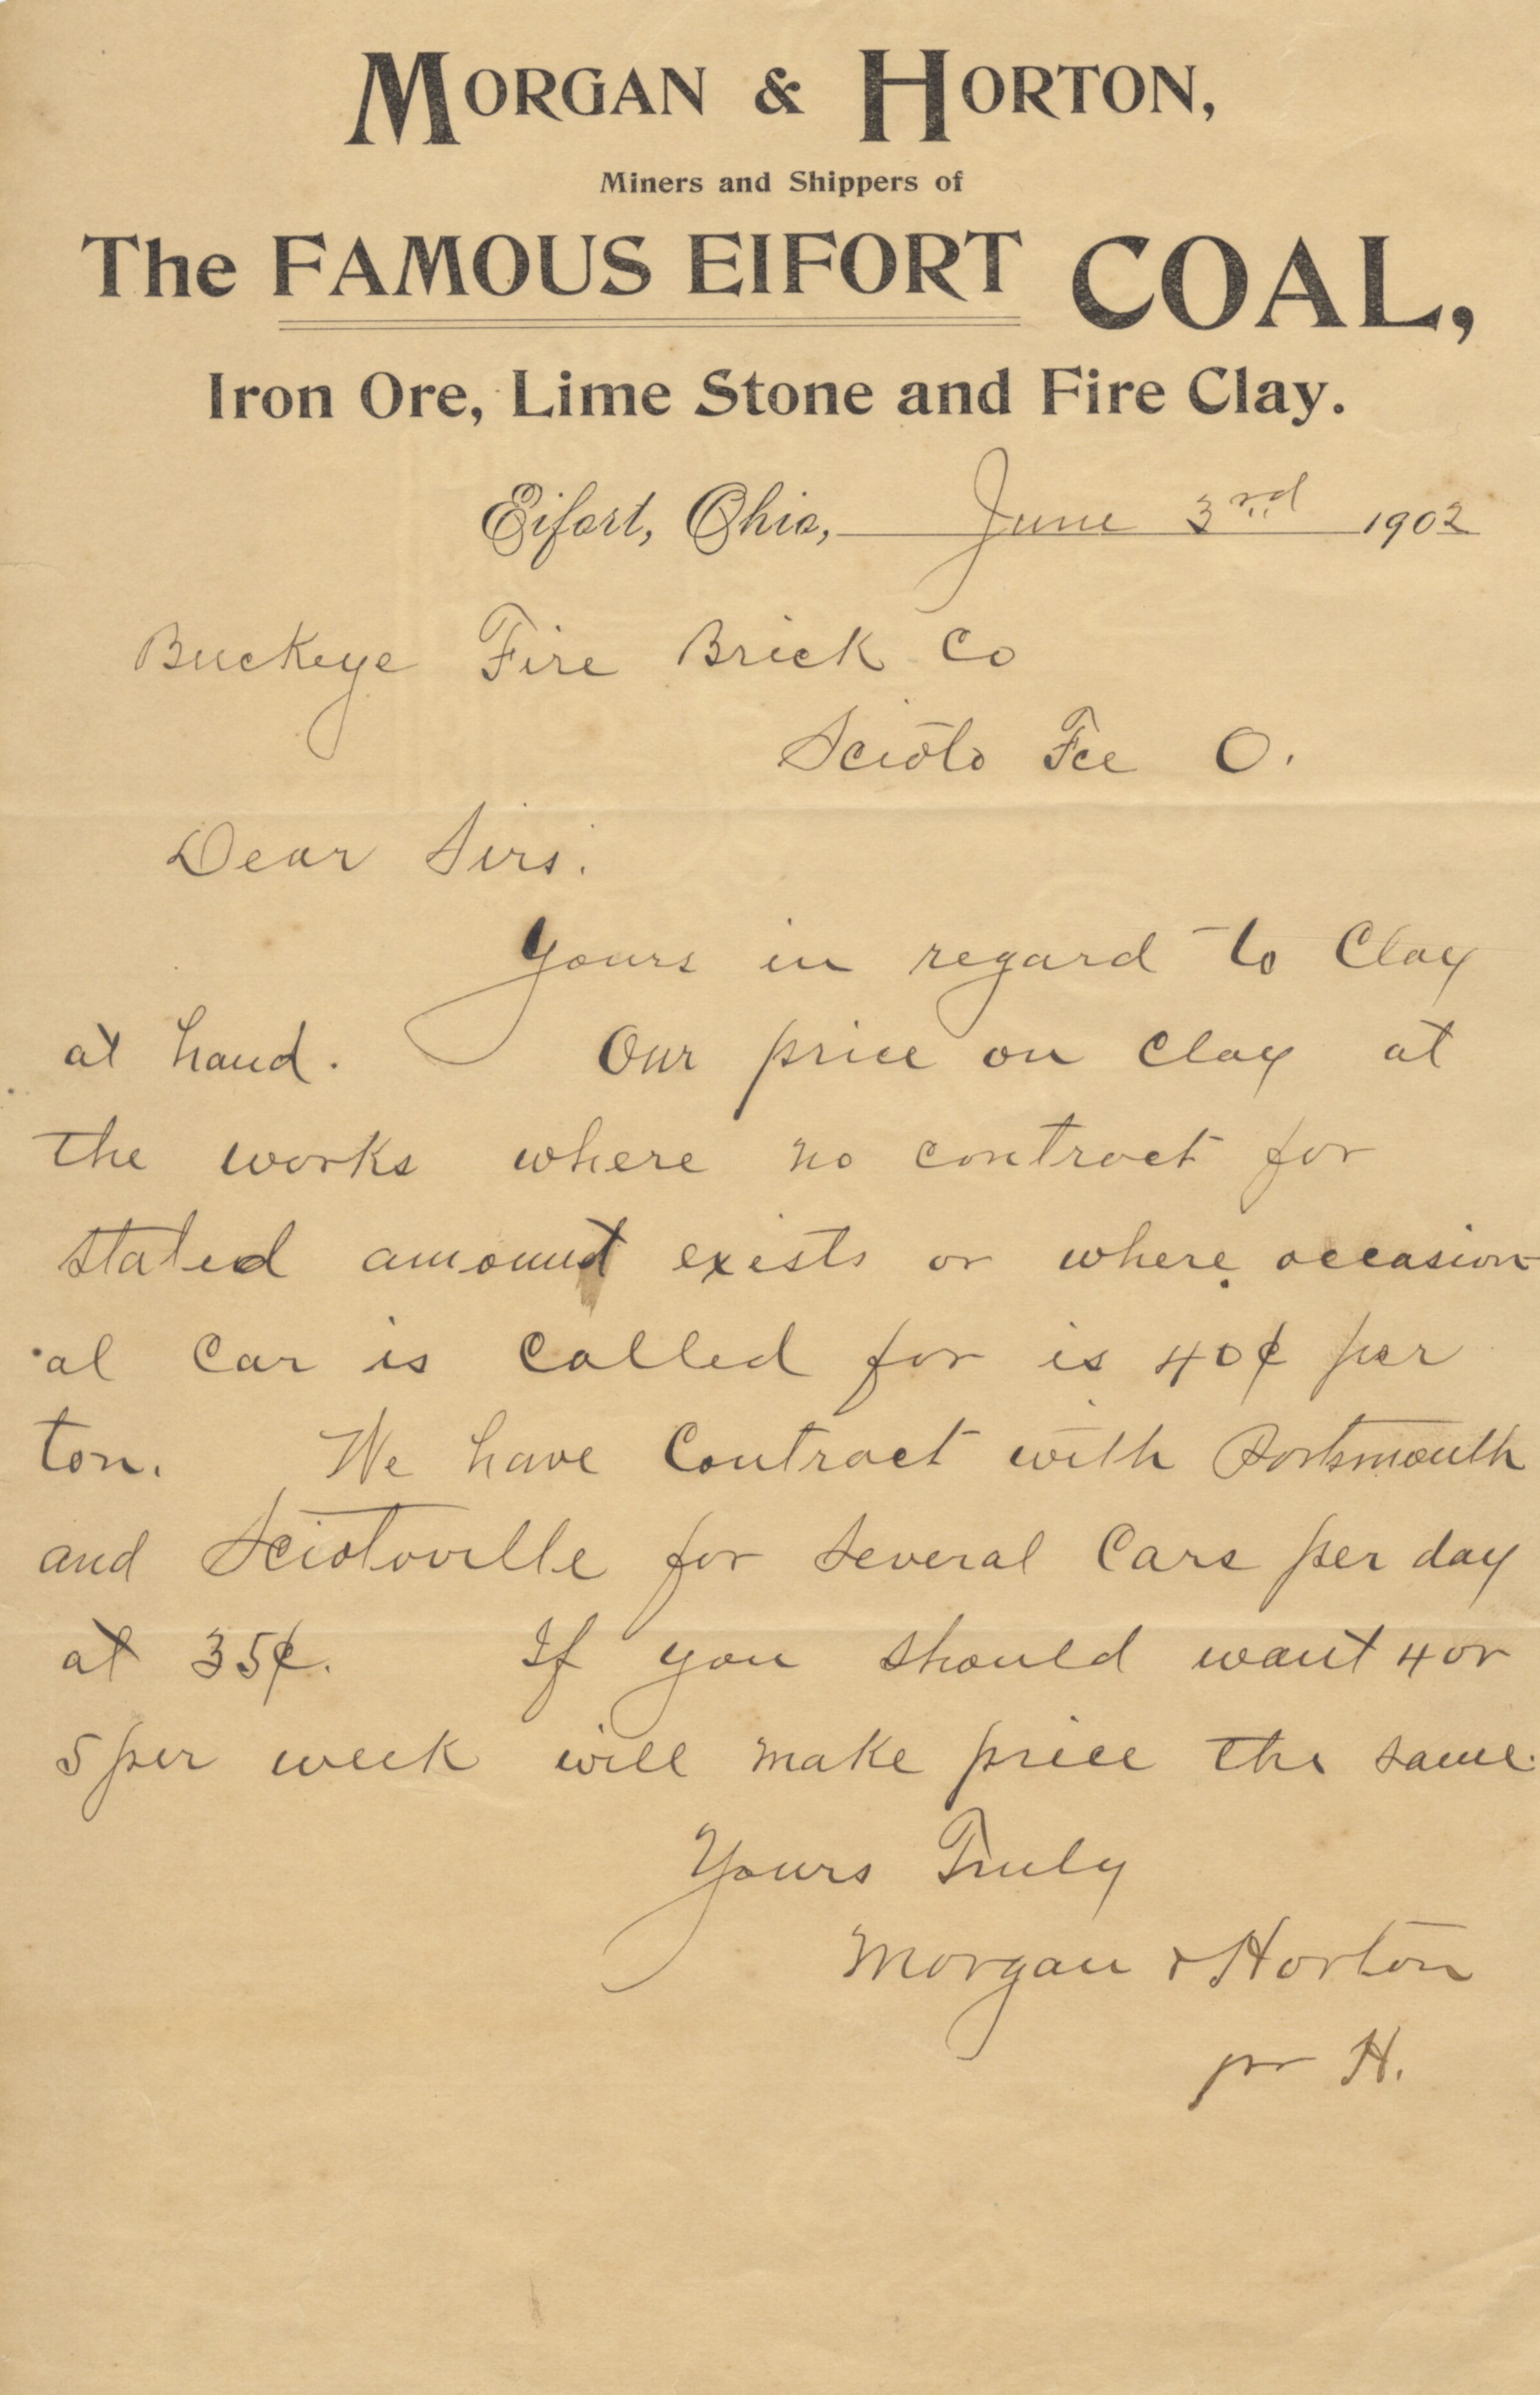 MORGAN & HORTON,
Miners and Shippers of
The FAMOUS EIFORT COAL,
Iron Ore, Lime Stone and Fire Clay.
Eifort, Ohio, June 3rd 1902
Buckeye Fire Brick Co
Scioto Fce O.
Dear Sirs.
Yours in regard to Clay
at hand. Our price on clay at
the works where no contract for
stated amount exists or where occasion
al car is called for is 40¢ per
ton. We have Contract with Portsmouth
and Sciotoville for several Cars per day
at 35¢. If you should want 4 or
5 per week will make price the same.
Yours Truly
Morgan & Horton
pr H.